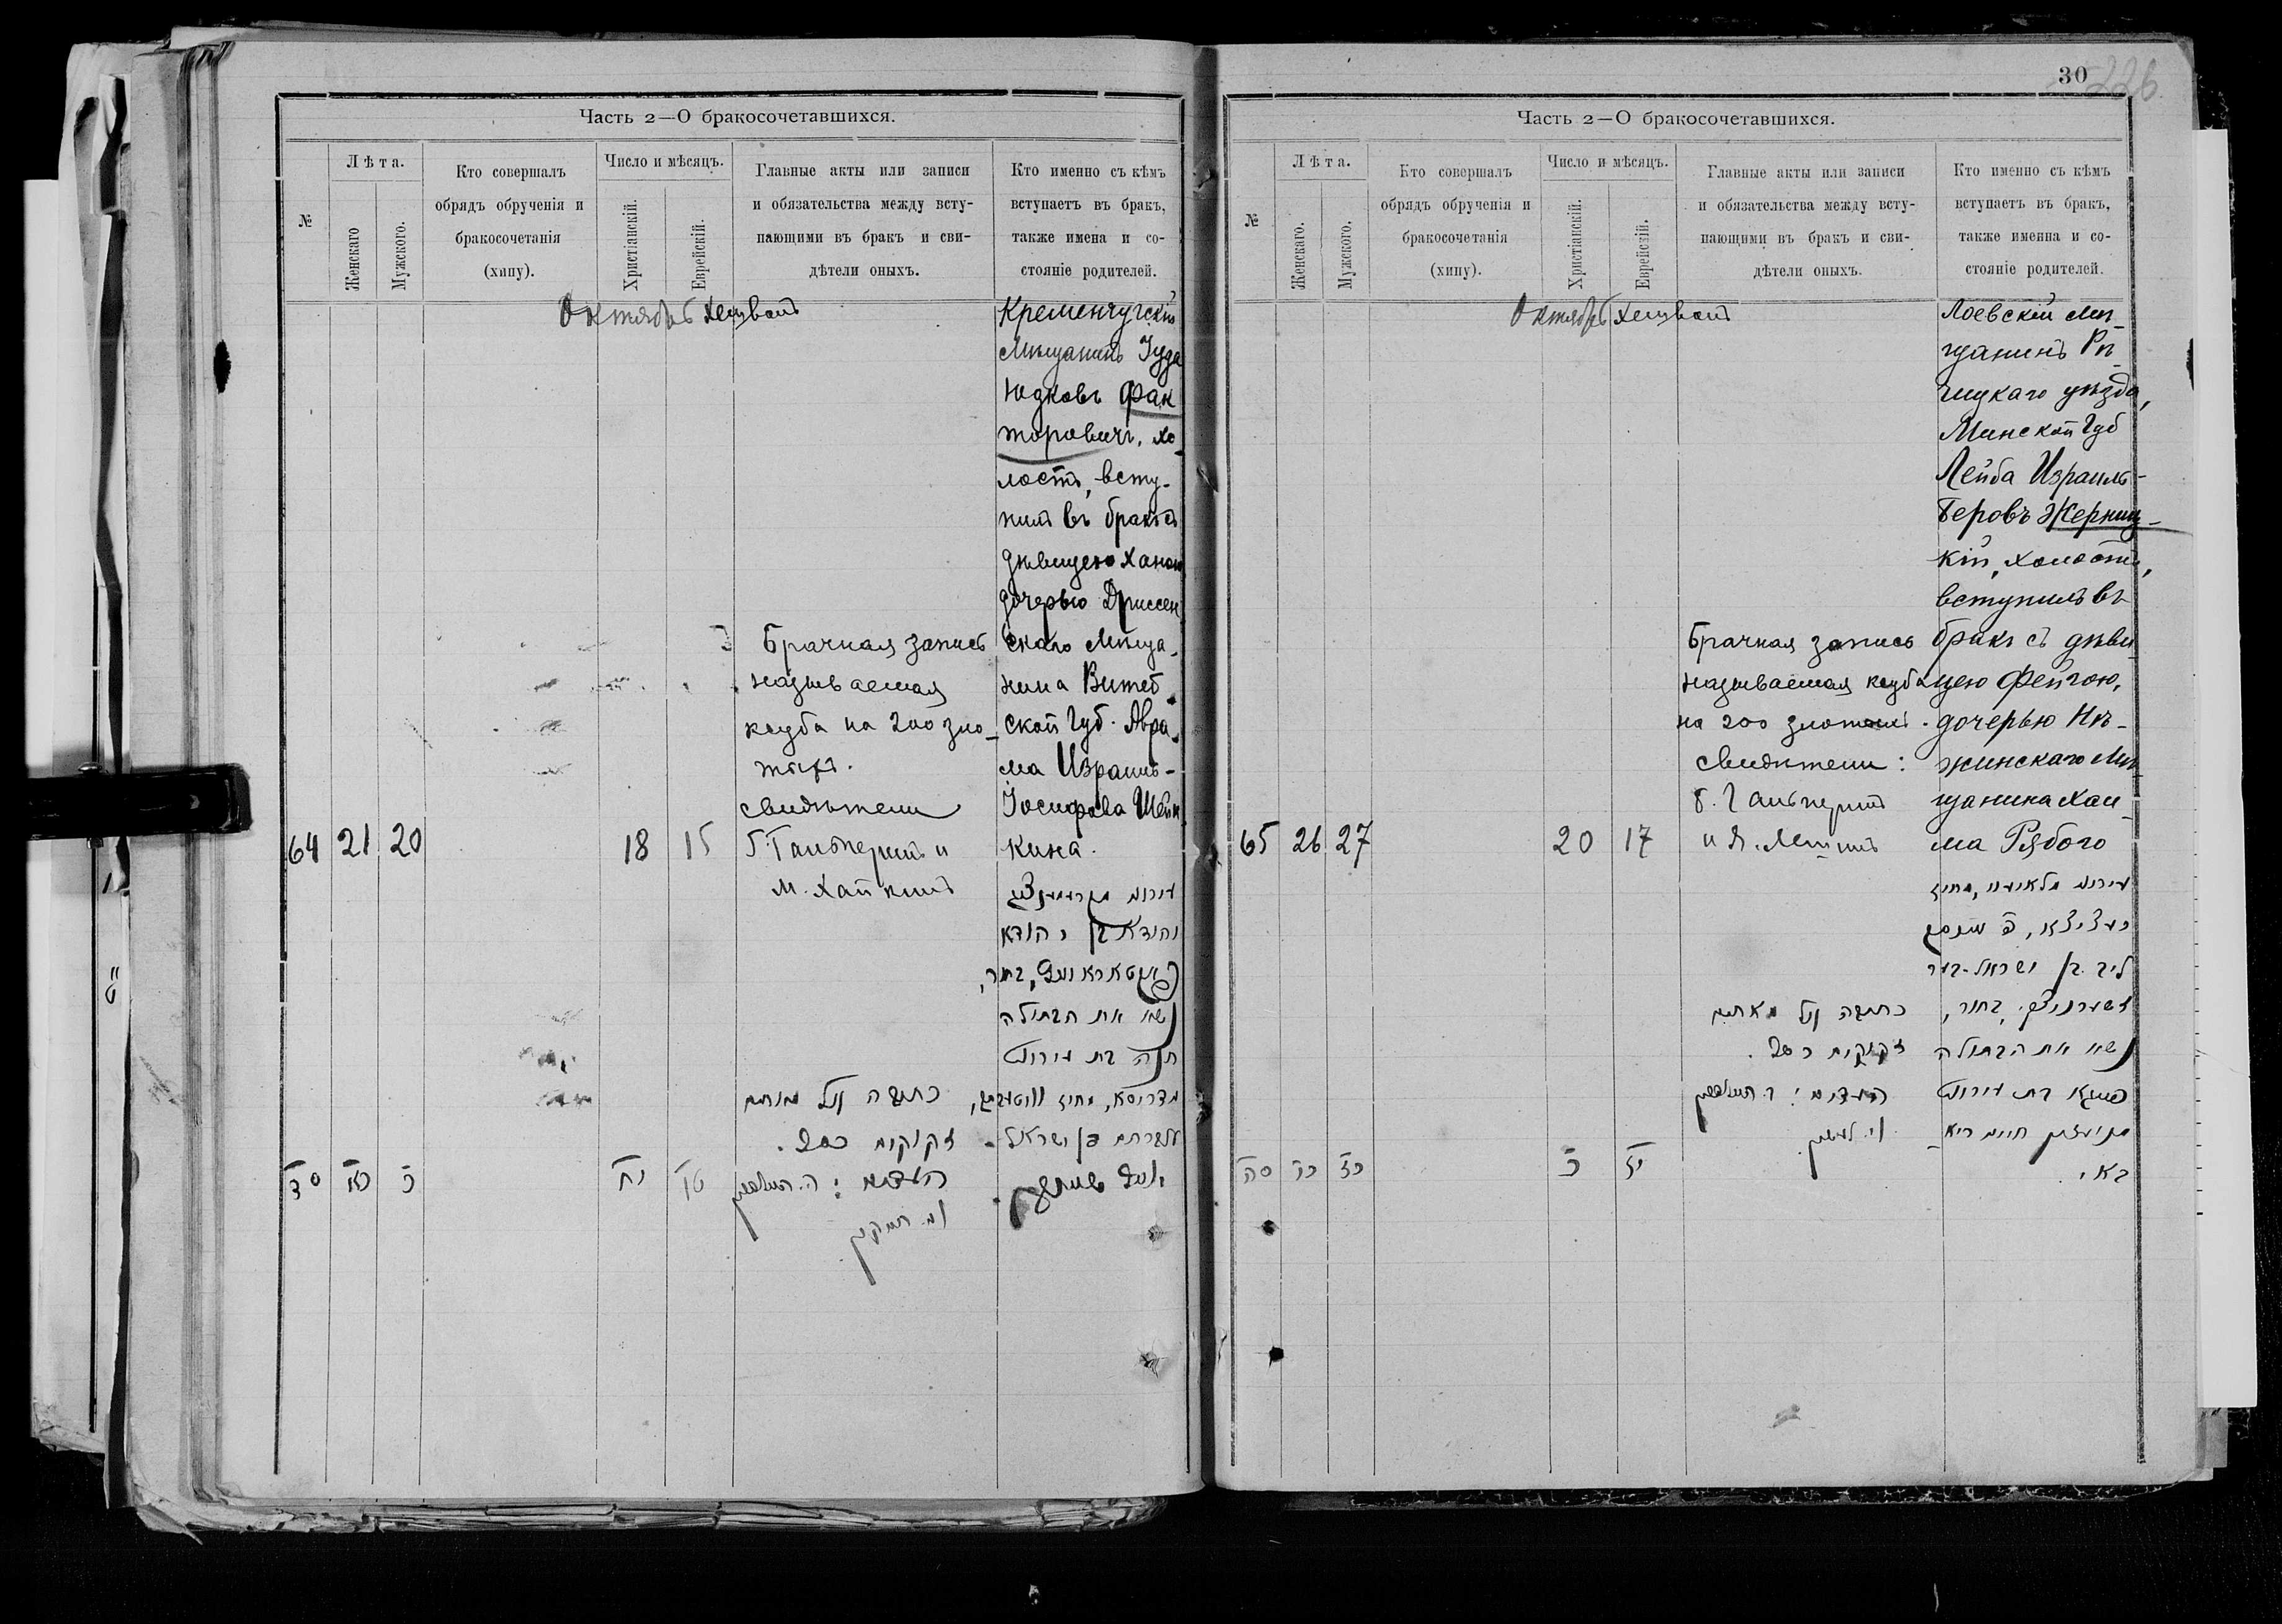 Часть 2—О бракосочетавшихся.
№
Лѣта.
Женскаго
Мужского.
Кто совершалъ
обрядъ обрученія и
бракосочетанія
(хипу).
Число и мѣсяцъ.
Христіанскій.
Еврейскій.
Главные акты или записи
и обязательства между всту-
пающими въ бракъ и сви-
дѣтели оныхъ.
Кто именно съ кѣмъ
вступаетъ въ бракъ,
также имена и со-
стояніе родителей.
Октябрь Хешванъ
64 21 20
18 15
Брачная запись
называемая
ктуба на 200 зло-
тыхъ.
свидѣтели
Б. Гальперинъ и
М. Хайкинъ
Кременчугскій
Мѣщанинъ Іуда
Юдковъ Фак
торовичъ, хо
лостъ, всту-
пилъ въ бракъ съ
дѣвицею Ханою
дочерью Дриссен
скаго Мѣща-
нина Витеб
ской Губ. Авра-
ма Израиль-
Іосифова Шейн
кина.
נשא את הבתולה
חנה בת
כתובה על מאתים
זקוקים כסף.
העדים:
סד כא כ
יח טו
30
226
Часть 2—О бракосочетавшихся.
№
Лѣта.
Женскаго.
Мужского.
Кто совершалъ
обрядъ обрученія и
бракосочетанія
(хипу).
Число и мѣсяцъ.
Христіанскій.
Еврейскій.
Главные акты или записи
и обязательства между всту-
пающими въ бракъ и сви-
дѣтели оныхъ.
Кто именно съ кѣмъ
вступаетъ въ бракъ,
также именна и со-
стояніе родителей.
Октябрь Хешванъ
65 26 27
20 17
Брачная запись
называемая ктуба
на 200 злотыхъ.
Свидѣтели:
Б. Гальперинъ
Лоевскій Мѣ-
щанинъ Рѣ-
чицкаго уѣзда,
Минской Губ
Лейба Израиль-
Беровъ Жерниц-
кій, холостъ,
вступилъ въ
бракъ съ дѣви
цею Фейгою,
дочерью Нѣ-
жинскаго Мѣ
щанина Хаи-
ма Рябого
ליב בן ישראל-בער
כתובה על מאתים
זקוקים כסף.
נשא את הבתולה
פייגא בת
העדים:
חיים
סה כו כז
כ יז